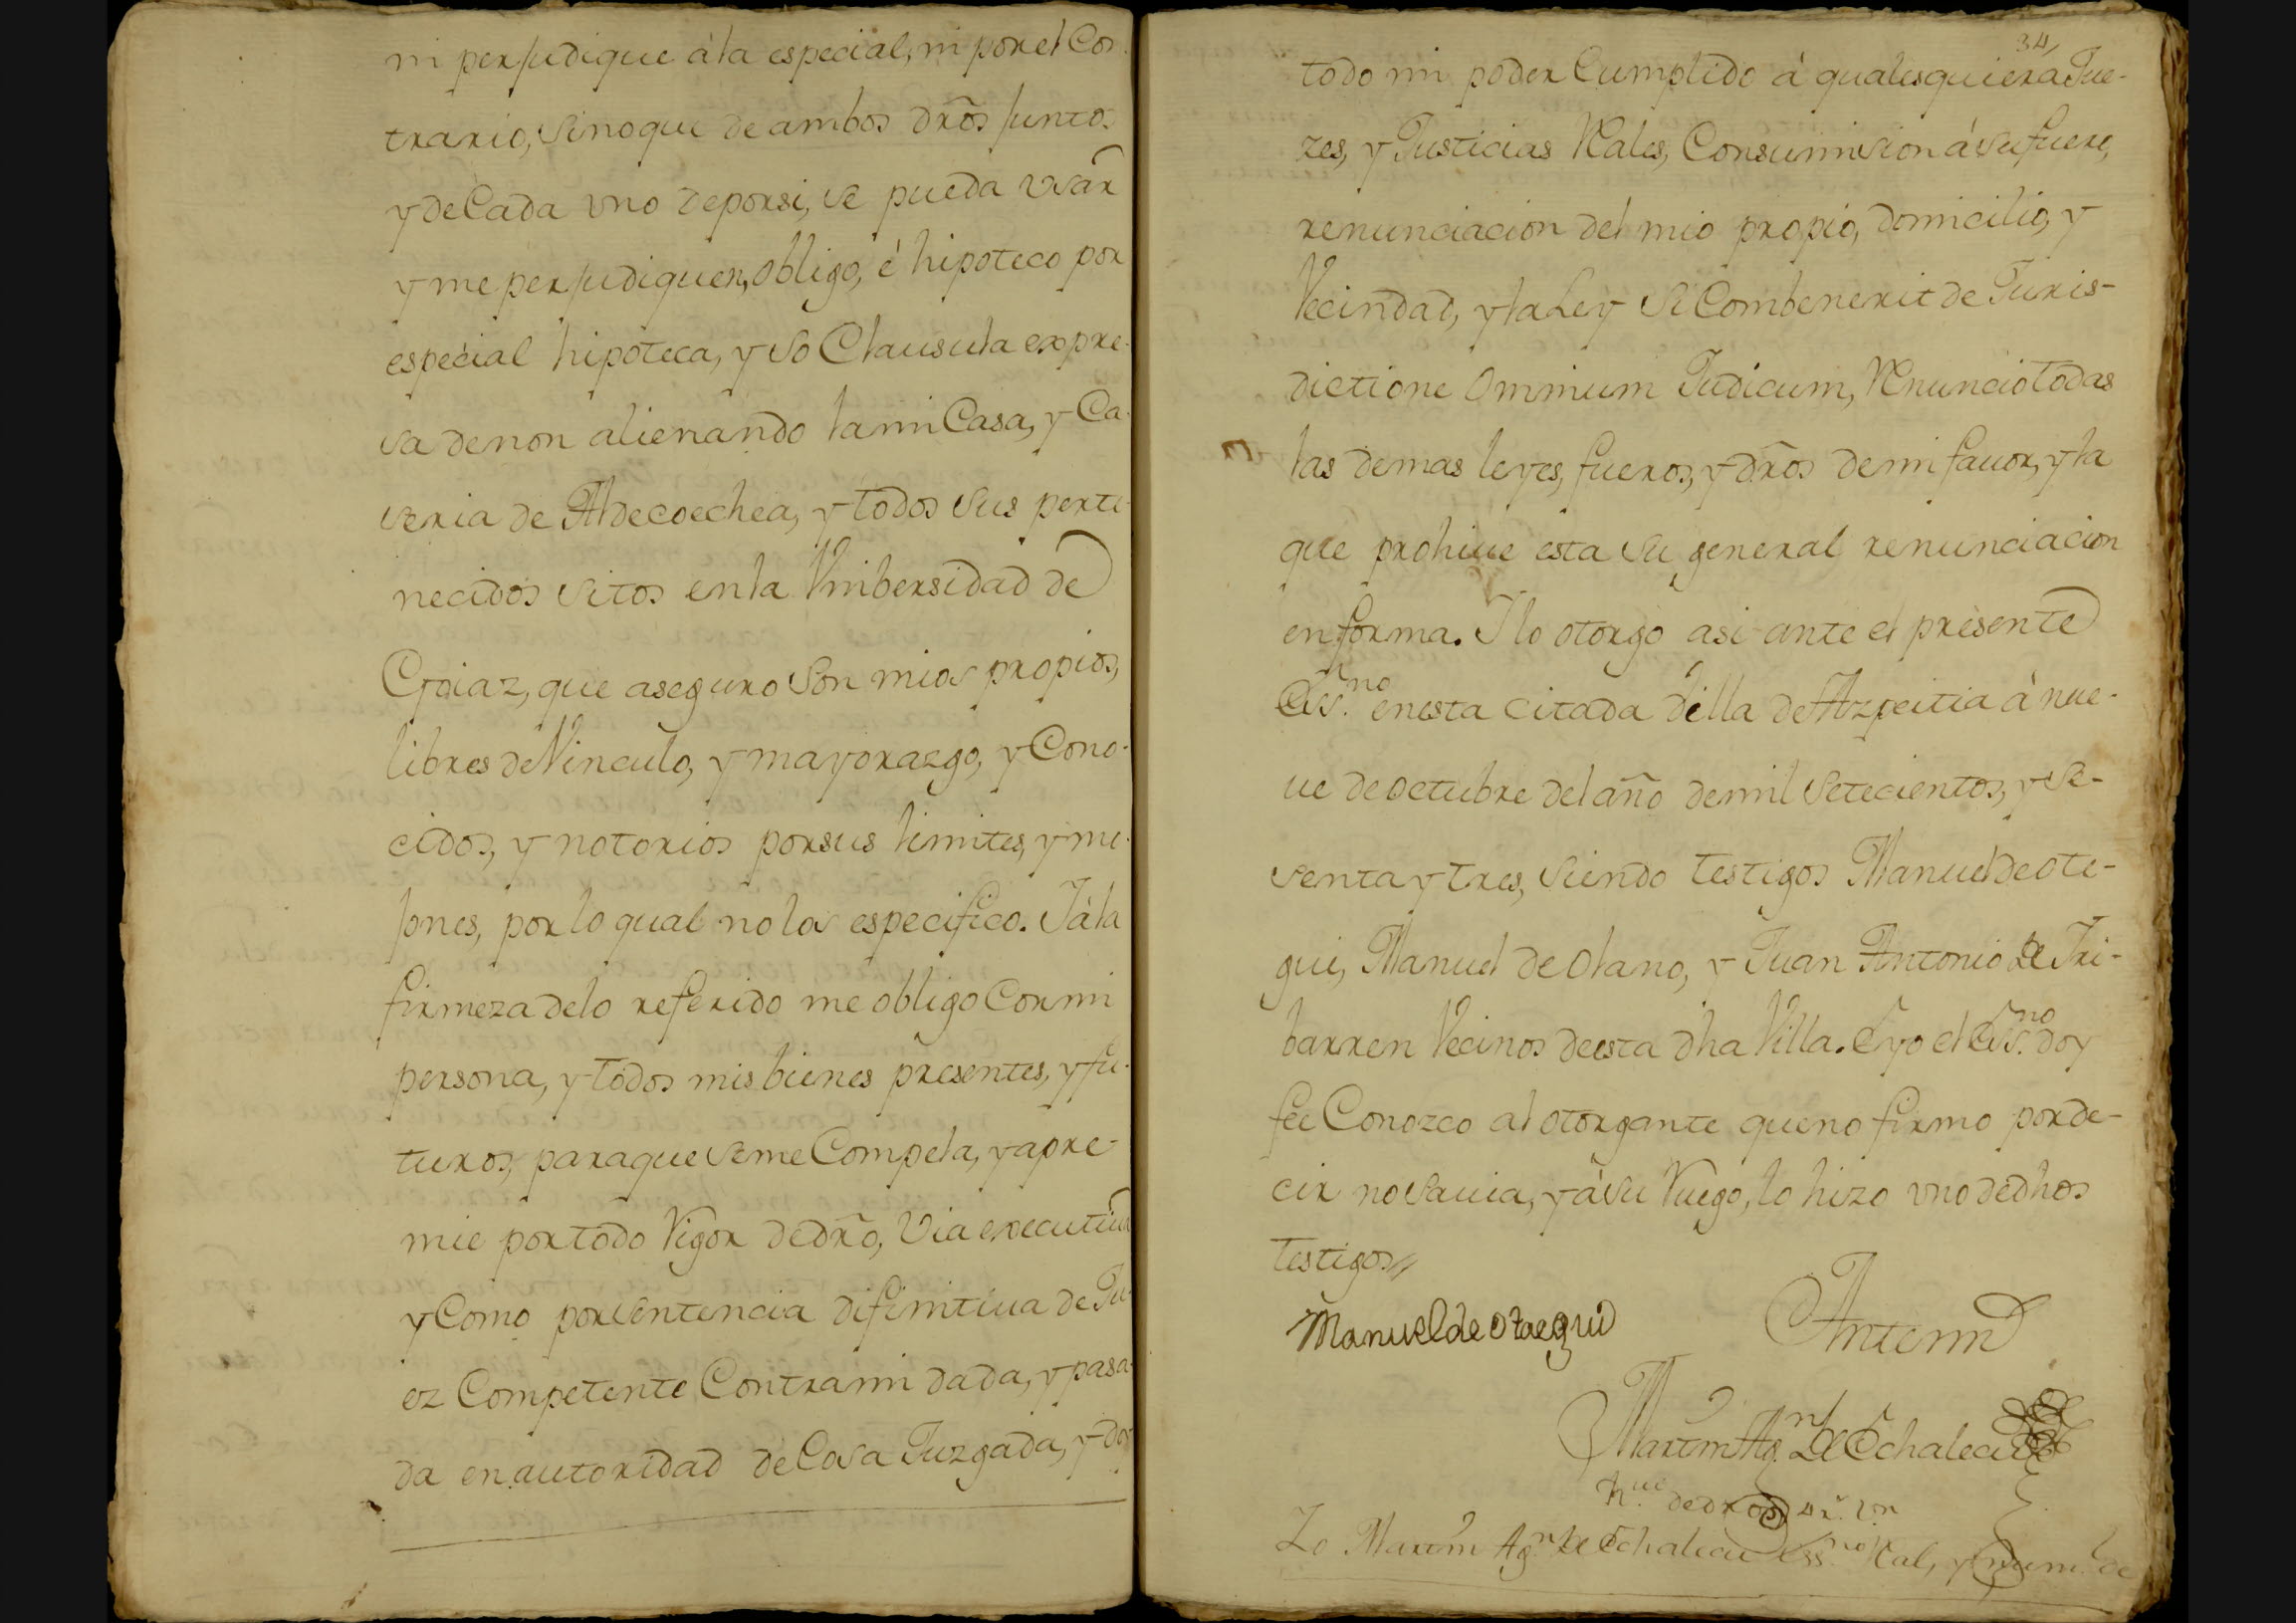 ni perjudique á la especial, ni por el Con-
trario, sino que de ambos dr̃os juntos
y de Cada vno de por si, se pueda vsar
y me perjudiquen, obligo, é hipoteco por
especial hipoteca, y so Clausula expre-
sa de non alienando la mi Casa, y Ca-
seria de Aldecoechea, y todos sus perte-
necidos sitos en la Vnibersidad de
Goiaz, que aseguro son mios propios,
libres de Vinculo, y mayorazgo, y Cono-
cidos, y notorios por sus limites, y mo-
jones, por lo qual no los especifico. I á la
firmeza de lo referido me obligo Con mi
persona, y todos mis bienes presentes, y fu-
turos, para que se me Compela, y apre-
mie por todo Vigor de dr̃o, Via executiua
y Como por sentencia difinitiua de Ju-
ez Competente Contra mi dada, y pasa-
da en autoridad de Cosa Juzgada, y doy
34,
todo mi poder Cumplido á qualesquiera Jue-
zes, y Justicias Rales, Consumision á su fuero,
renunciacion del mio propio, domicilio, y
Vecindad, y la Ley Si Combenerit de Juris-
dictione Omnium Judicum, Renuncio todas
las demas leyes, fueros, y dr̃os de mi fauor, y la
que prohiue esta su general renunciacion
en forma. I lo otorgo asi ante el presente
Ess.no en esta citada Villa de Azpeitia á nue-
ue de octubre del año de mil setecientos, y se-
senta y tres, siendo testigos Manuel de ote-
gui, Manuel de Olano, y Juan Antonio de Iri-
barren Vecinos de esta dha Villa. E yo el Ess.no doy
fee Conozco al otorgante que no firmo por de-
cir no sauia, y á su Ruego, lo hizo vno de dhos
testigos //
Manuel de otaegui
Ante mi
Martin Ag.n de Echalecu
de dros
Io Martin Ag.n de Echalecu ess.no Ral, y num.l de